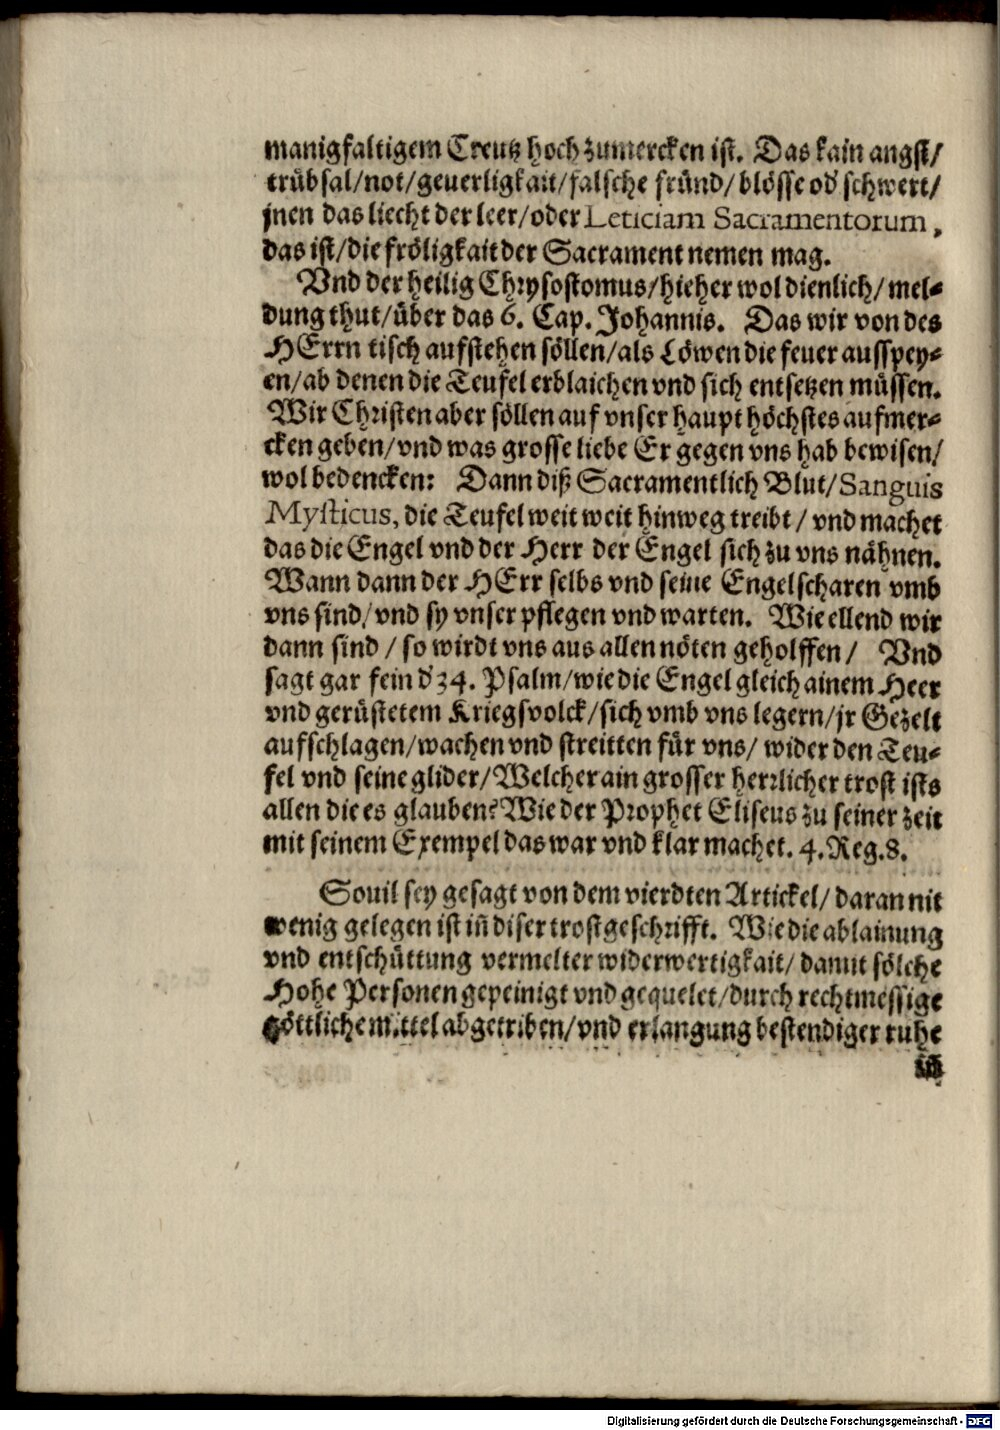 manigfaltigem Creutz hoch zumercken ist. Das kain angst/
trübsal/not/geuerligkait/falsche fründ/blösse od' schwert/
jnen das liecht der leer/oder Leticiam Sacramentorum,
das ist/die fröligkait der Sacrament nemen mag.
Vnd der heilig Chrysostomus/hieher wol dienlich/mel-
dung thut/über das 6. Cap. Johannis. Das wir von des
HErrn tisch aufstehen söllen/als Löwen die feuer ausspey-
en/ab denen die Teufel erblaichen vnd sich entsetzen müssen.
Wir Christen aber söllen auf vnser haupt höchstes aufmer-
cken geben/vnd was grosse liebe Er gegen vns hab bewisen/
wol bedencken: Dann diß Sacramentlich Blut/Sanguis
Mysticus, die Teufel weit weit hinweg treibt/vnd machet
das die Engel vnd der Herr der Engel sich zu vns nähnen.
Wann dann der HErr selbs vnd seine Engelscharen vmb
vns sind/vnd sy vnser pflegen vnd warten. Wie ellend wir
dann sind/so wirdt vns aus allen nöten geholffen/ Vnd
sagt gar fein d' 34. Psalm/wie die Engel gleich ainem Heer
vnd gerüstetem Kriegsvolck/sich vmb vns legern/jr Gezelt
aufschlagen/wachen vnd streitten für vns/wider den Teu-
fel vnd seine glider/Welcher ain grosser herrlicher trost ists
allen die es glauben? Wie der Prophet Eliseus zu seiner zeit
mit seinem Exempel das war vnd klar machet. 4.Reg.8.
Souil sey gesagt von dem vierdten Artickel/daran nit
wenig gelegen ist iñ diser trostgeschrifft. Wie die ablainung
vnd entschüttung vermelter widerwertigkait/damit sölche
Hohe Personen gepeinigt vnd gequelet/durch rechtmessige
göttliche mittel abgetriben/vnd erlangung bestendiger ruhe
Digitalisierung gefördert durch die Deutsche Forschungsgemeinschaft - DFG